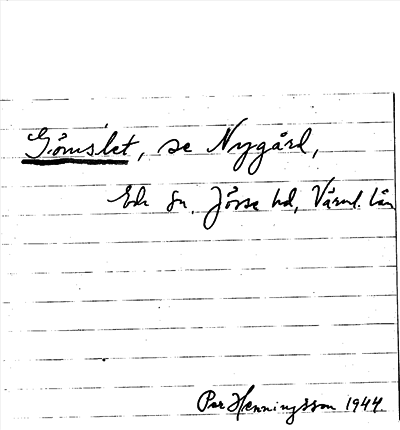 Gömslet, se Nygård,
Eda sn, Jösse hd, Värml. län
Per Henningsson 1944.